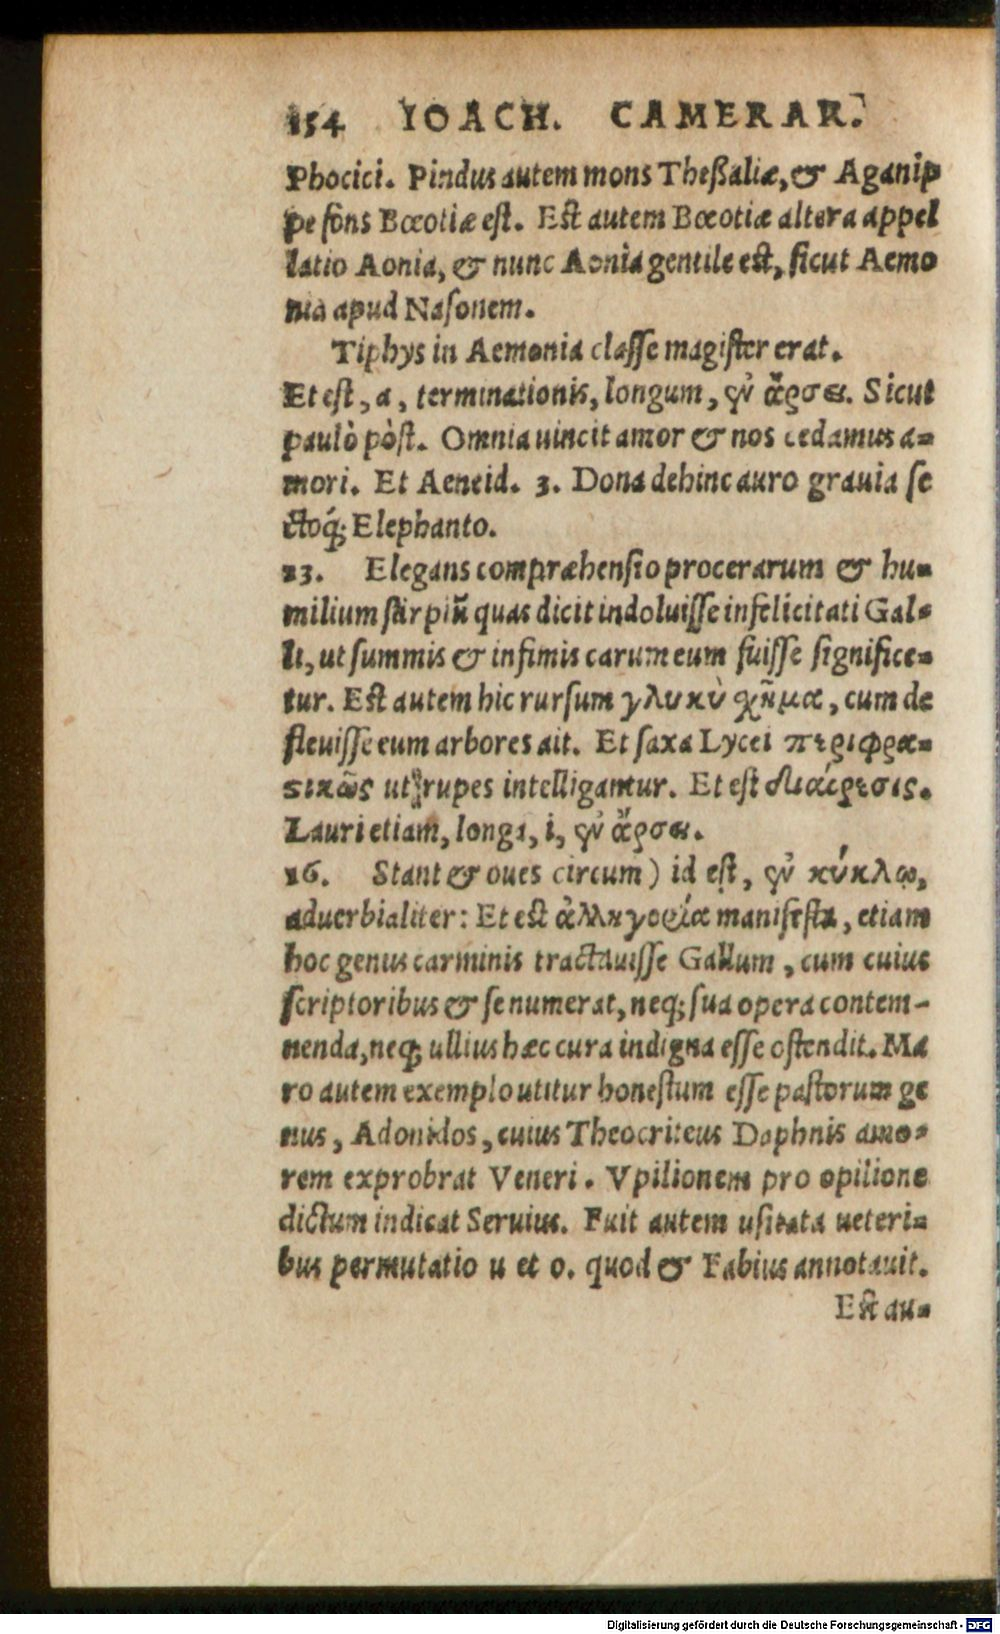 154 IOACH. CAMERAR.
Phocici. Pindus autem mons Theßaliæ, & Aganip
pe fons Bœotiæ est. Est autem Bœotiæ altera appel
latio Aonia, & nunc Aonia gentile est, sicut Aemo
nia apud Nasonem.
Tiphys in Aemonia classe magister erat.
Et est, a, terminationis, longum, ἐν ἄρσει. Sicut
paulò pòst. Omnia uincit amor & nos cedamus a-
mori. Et Aeneid. 3. Dona dehinc auro grauia se
ctoq́; Elephanto.
13. Elegans compræhensio procerarum & hu-
milium stirpiũ quas dicit indoluisse infelicitati Gal-
li, ut summis & infimis carum eum fuisse significe-
tur. Est autem hic rursum γλυκὺ χῆμα, cum de
fleuisse eum arbores ait. Et saxa Lycei περιφρα-
στικῶς ut rupes intelligantur. Et est διαίρεσις.
Lauri etiam, longa, i, ἐν ἄρσει.
16. Stant & oues circum) id est, ἐν κύκλῳ,
aduerbialiter: Et est ἀλληγορία manifesta, etiam
hoc genus carminis tractauisse Gallum, cum cuius
scriptoribus & se numerat, neq; sua opera contem-
nenda, neq; ullius hæc cura indigna esse ostendit. Ma
ro autem exemplo utitur honestum esse pastorum ge
nus, Adonidos, cuius Theocriteus Daphnis amo-
rem exprobrat Veneri. Vpilionem pro opilione
dictum indicat Seruius. Fuit autem usitata ueteri-
bus permutatio u et o. quod & Fabius annotauit.
Est au-
Digitalisierung gefördert durch die Deutsche Forschungsgemeinschaft - DFG